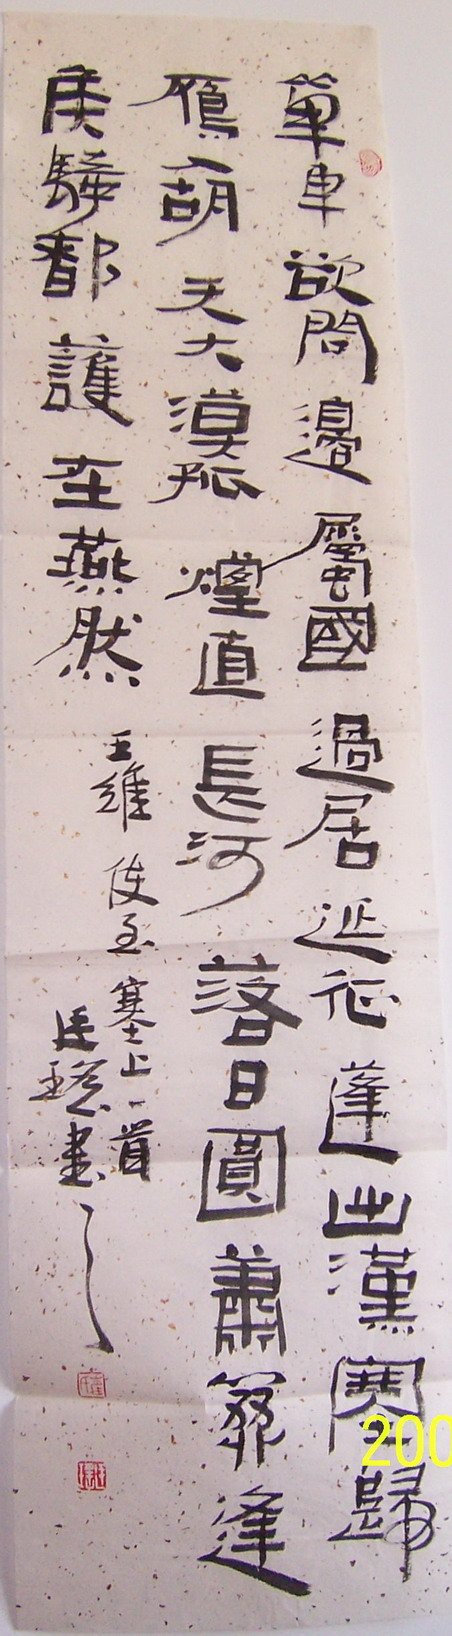 單車欲問邊屬國過居延征蓬出漢塞歸
鴈入胡天大漠孤煙直長河落日圓蕭關逢
候騎都護在燕然
王維使至塞上一首
書
200